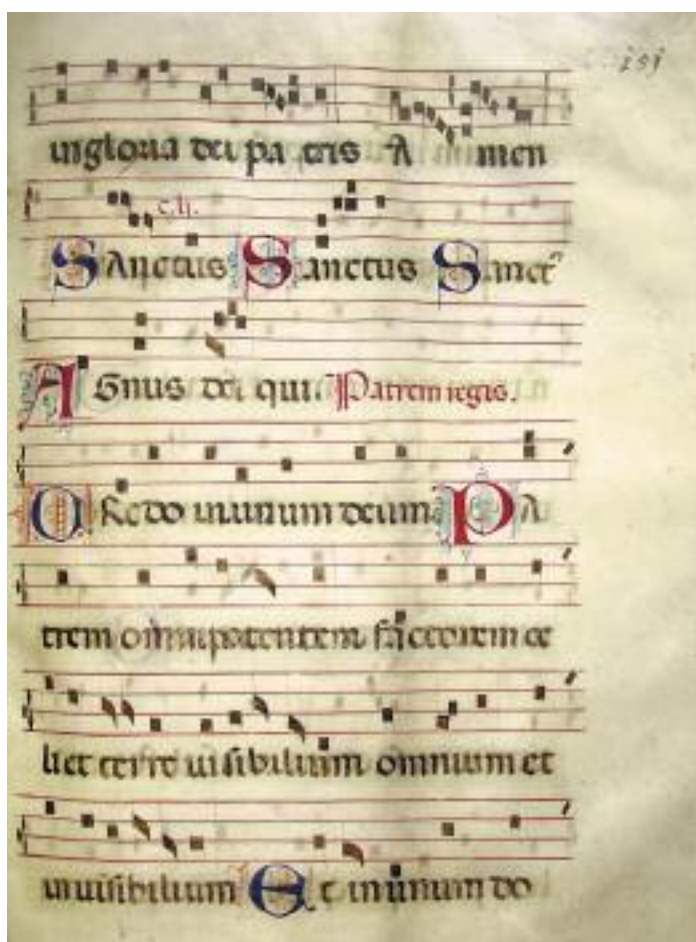 in gloria dei pa tris A men
Sanctus Sanctus Sanct⁹
Agnus dei qui Patrem regis.
Credo in unum deum Pa
trem omnipotentem factorem ce
li et terre uisibilium omnium et
inuisibilium Et in unum do